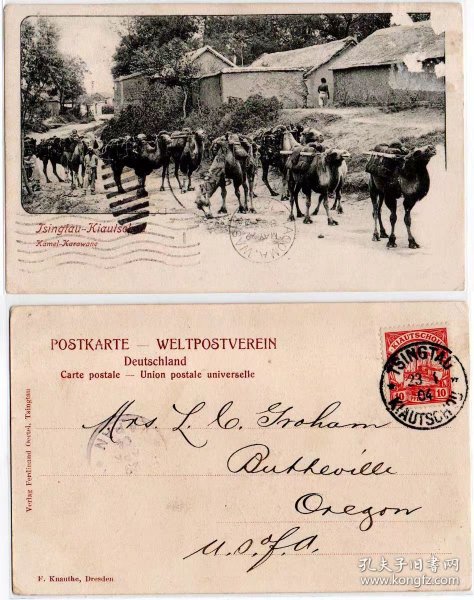 Tsingtau-Kiautschou
Kamel-Karawane
TACOMA, WASH.
POSTKARTE — WELTPOSTVEREIN
Deutschland
Carte postale — Union postale universelle
KIAUTSCHOU
10 10
TSINGTAU
23 4
04
KIAUTSCHOU
Mrs. L. C. Groham
Butteville
Oregon
U.S.A.
Verlag Ferdinand Oertel, Tsingtau
F. Knauthe, Dresden
孔夫子旧书网